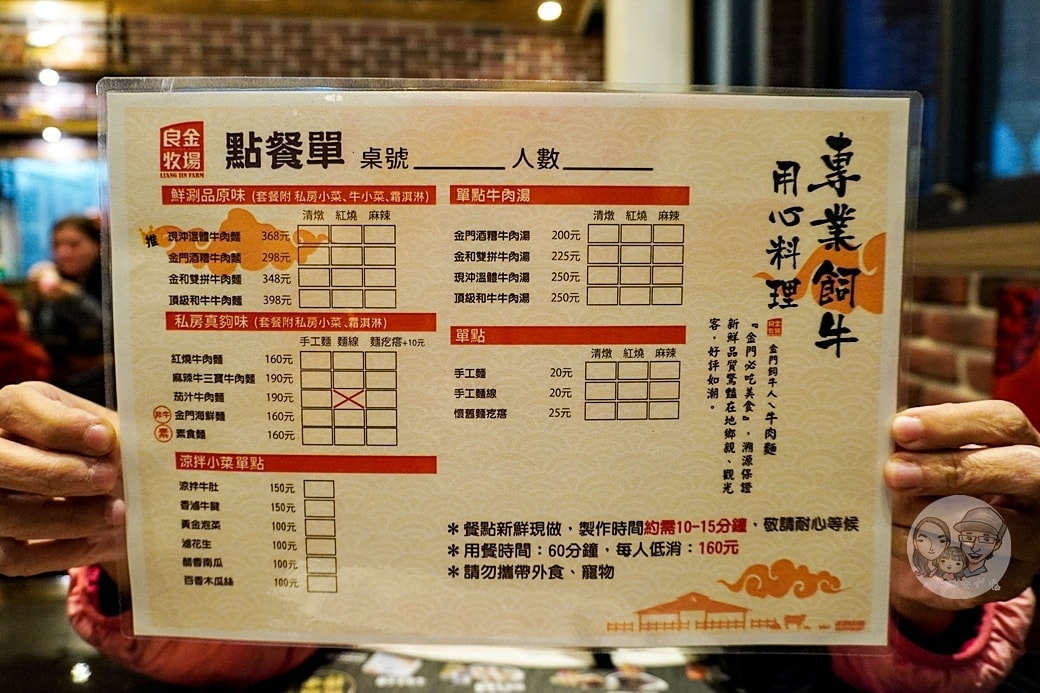 良金牧場
LIANG JIN FARM
點餐單 桌號 人數
鮮涮品原味 (套餐附 私房小菜、牛小菜、霜淇淋)
清燉 紅燒 麻辣
推 現沖溫體牛肉麵 368元
金門酒糟牛肉麵 298元
金和雙拼牛肉麵 348元
頂級和牛牛肉麵 398元
私房真夠味 (套餐附私房小菜、霜淇淋)
手工麵 麵線 麵疙瘩+10元
紅燒牛肉麵 160元
麻辣牛三寶牛肉麵 190元
茄汁牛肉麵 190元
非牛 金門海鮮麵 160元
素 素食麵 160元
涼拌小菜單點
涼拌牛肚 150元
香滷牛腱 150元
黃金泡菜 100元
滷花生 100元
醋香南瓜 100元
百香木瓜絲 100元
單點牛肉湯
清燉 紅燒 麻辣
金門酒糟牛肉湯 200元
金和雙拼牛肉湯 225元
現沖溫體牛肉湯 250元
頂級和牛牛肉湯 250元
單點
清燉 紅燒 麻辣
手工麵 20元
手工麵線 20元
懷舊麵疙瘩 25元
專業飼牛
用心料理
良金牧場 金門飼牛人、牛肉麵
『金門必吃美食』，溯源保證
新鮮品質驚豔在地鄉親、觀光
客，好評如潮。
＊餐點新鮮現做，製作時間約需10-15分鐘，敬請耐心等候
＊用餐時間：60分鐘，每人低消：160元
＊請勿攜帶外食、寵物